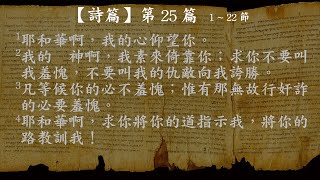 【詩篇】第 25 篇 1～22 節
1耶和華啊，我的心仰望你。
2我的　神啊，我素來倚靠你；求你不要叫
我羞愧，不要叫我的仇敵向我誇勝。
3凡等候你的必不羞愧；惟有那無故行奸詐
的必要羞愧。
4耶和華啊，求你將你的道指示我，將你的
路教訓我！